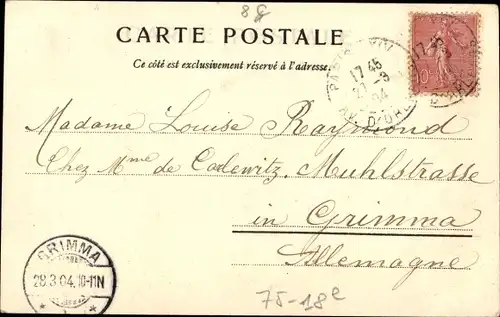 8 g
CARTE POSTALE
Ce côté est exclusivement réservé à l'adresse.
PARIS XIV
17 45
27 -3
04
AV. D'ORL
17 45
10
Madame Louise Raymond
Chez Mme de Carlewitz. Muhlstrasse
in Grimma
Allemagne
GRIMMA
28.3.04.10-11N
75-18e